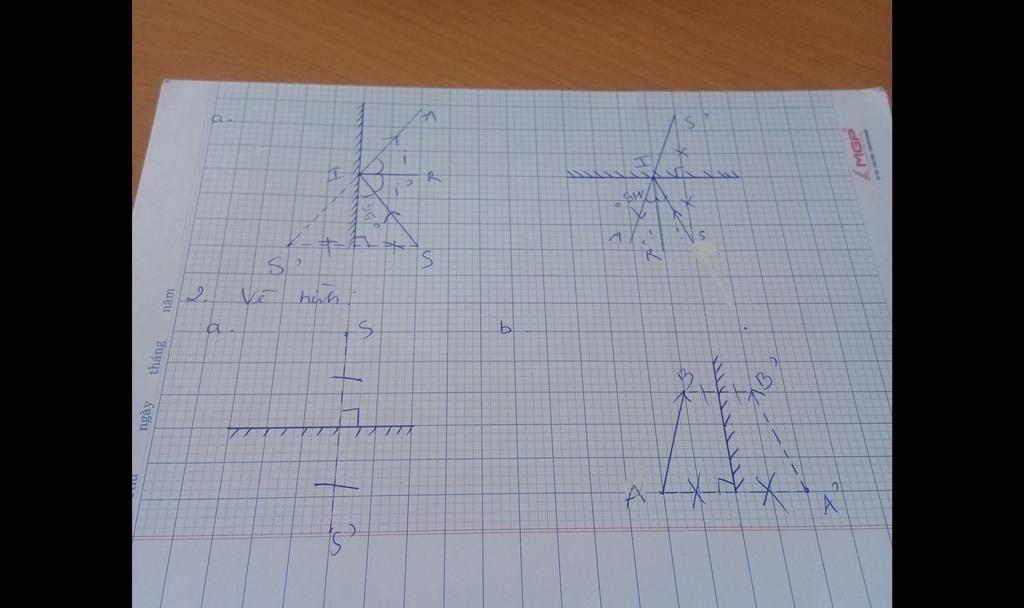 a.
S'
I
i
R
i'
S'
S
I
S
R
2. Vẽ hình:
a.
S
b
B
B'
A
A'
S'
ngày tháng năm
MGP